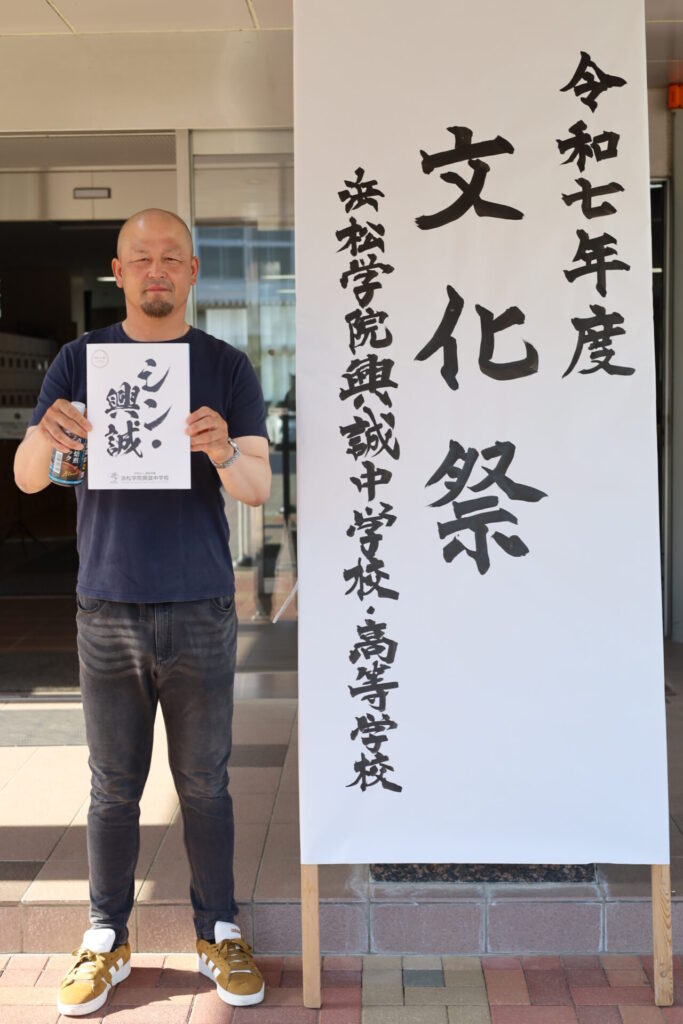 令和七年度
文化祭
浜松学院興誠中学校・高等学校
シン・
興誠
浜松学院興誠中学校